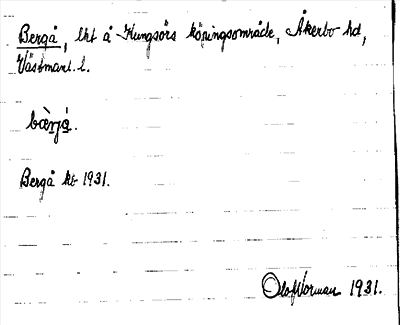 Bergå, lht å Kungsörs köpingsområde, Åkerbo hd,
Västmanl. l.
bæ̀rjá.
Bergå kb 1931.
Olof Norman 1931.